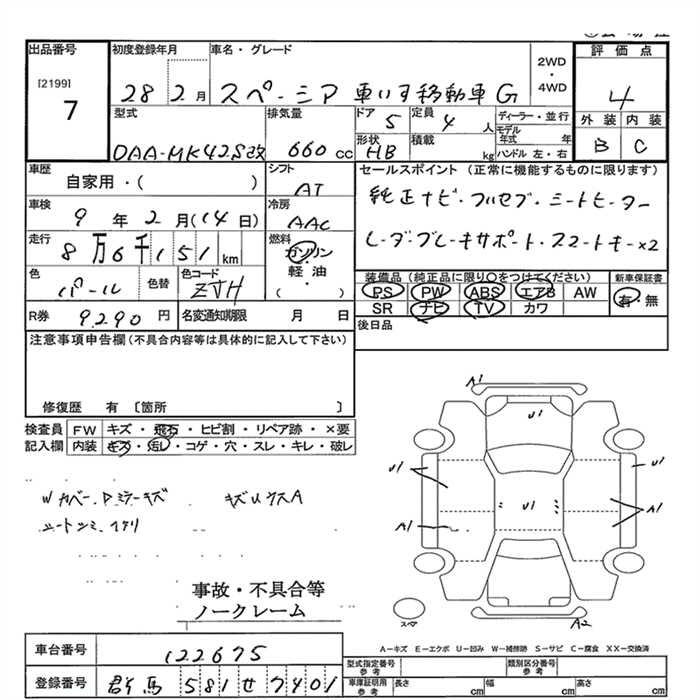 出品番号 初度登録年月 車名・グレード 2WD・4WD 評価点
[2199]
7
28 2月 スペーシア 車いす移動車 G
4
型式 排気量 ドア 5 定員 4人 ディーラー・並行
モデル年式 年
外装 内装
DAA-MK42S改 660cc 形状 HB 積載 kg ハンドル 左・右
B C
車歴 シフト セールスポイント (正常に機能するものに限ります)
自家用・( ) AT
純正ナビ・フルセグ・シートヒーター
車検 9年2月(14日) 冷房 AAC
走行 8万6千151km 燃料 ガソリン
レーダーブレーキサポート・スマートキー×2
軽・油
( )
色 パール 色替 色コード ZJH
装備品(純正品に限り○をつけてください) 新車保証書
PS PW ABS エアB AW 有・無
SR ナビ TV カワ
R券 9,290円 名変通知期限 月 日
後日品
注意事項申告欄(不具合内容等は具体的に記入して下さい)
修復歴 有 〔箇所 〕
検査員 FW キズ・飛石・ヒビ割・リペア跡・×要
記入欄 内装 キズ・汚レ・コゲ・穴・スレ・キレ・破レ
A1
U1
U1 U1
U1
A1 A1
Wカバー・Dミラーキズ キズUウスA
A2
事故・不具合等
ノークレーム
A-キズ E-エクボ U-凹み W-補修跡 S-サビ C-腐食 XX-交換済
車台番号 122675
型式指定番号 参考 類別区分番号 参考
登録番号 群馬 581 せ 7401
車庫証明用 参考 長さ cm 幅 cm 高さ cm